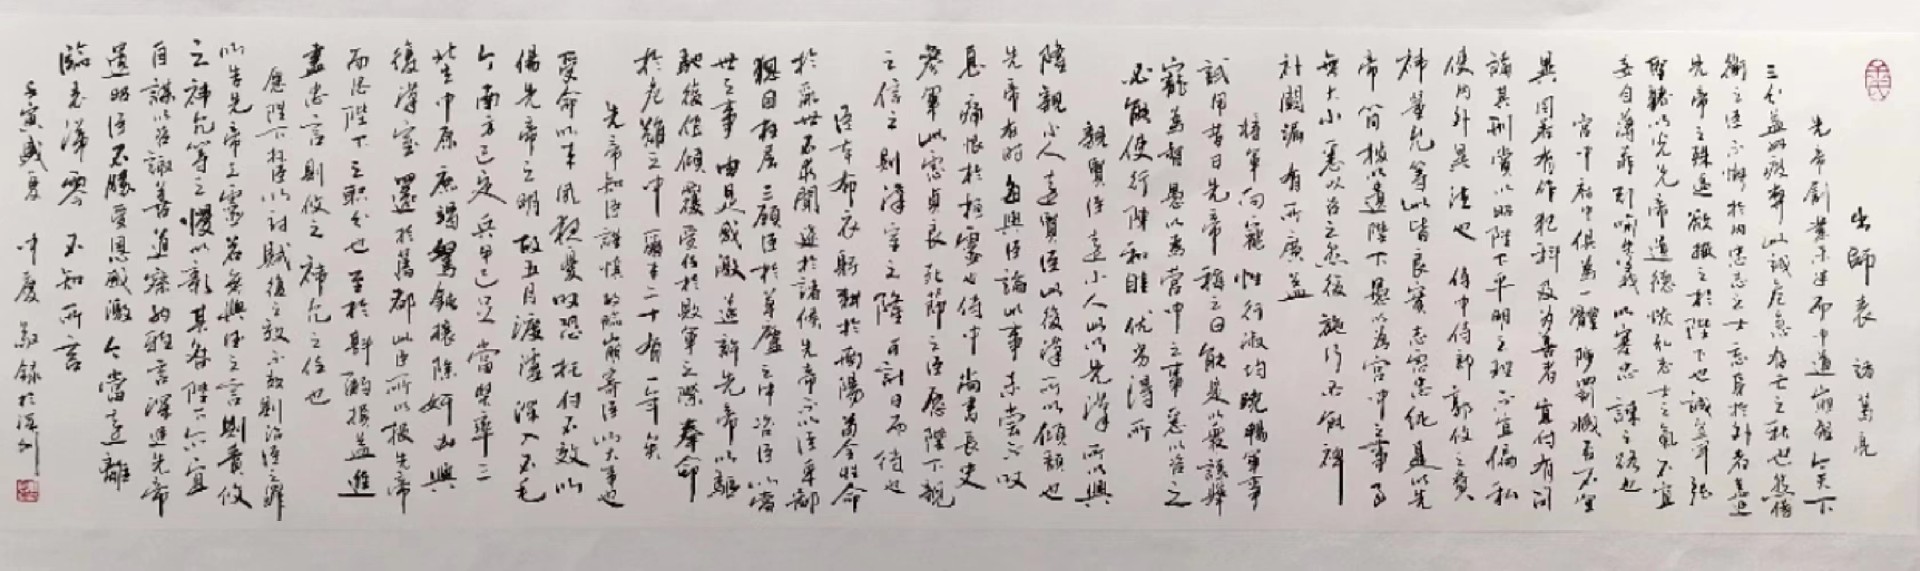 出師表 諸葛亮
先帝創業未半而中道崩殂今天下
三分益州疲弊此誠危急存亡之秋也然侍
衛之臣不懈於內忠志之士忘身於外者蓋追
先帝之殊遇欲報之於陛下也誠宜開張
聖聽以光先帝遺德恢弘志士之氣不宜
妄自薄菲引喻失義以塞忠諫之路也
宮中府中俱為一體陟罰臧否不宜
異同若有作犯科及為善者宜付有司
論其刑賞以昭陛下平明之理不宜偏私
使內外異法也 侍中侍郎郭攸之費
禕董允等此皆良實志慮忠純是以先
帝簡拔以遺陛下愚以為宮中之事事
無大小悉以咨之然後施行必能裨
補闕漏有所廣益
將軍向寵性行淑均曉暢軍事
試用昔日先帝稱之曰能是以眾議舉
寵為督愚以為營中之事悉以咨之
必能使行陣和睦優劣得所
親賢臣遠小人此以先漢所以興
隆親小人遠賢臣此後漢所以傾頹也
先帝在時每與臣論此事未嘗不歎
息痛恨於桓靈也侍中尚書長史
參軍此悉貞良死節之臣願陛下親
之信之則漢室之隆可計日而待也
臣本布衣躬耕於南陽苟全性命
於亂世不求聞達於諸侯先帝不以臣卑鄙
猥自枉屈三顧臣於草廬之中咨臣以當
世之事由是感激遂許先帝以驅
馳後值傾覆受任於敗軍之際奉命
於危難之中爾來二十有一年矣
先帝知臣謹慎故臨崩寄臣以大事也
受命以來夙夜憂歎恐托付不效以
傷先帝之明故五月渡瀘深入不毛
今南方已定兵甲已足當獎率三
北定中原庶竭駑鈍攘除奸凶興
復漢室還於舊都此臣所以報先帝
而忠陛下之職分也至於斟酌損益進
盡忠言則攸之禕允之任也
願陛下托臣以討賊復之效不效則治臣之罪
以告先帝之靈若無興德之言則責攸
之禕允等之慢以彰其咎陛下亦宜
自謀以咨諏善道察納雅言深追先帝
遺詔臣不勝受恩感激今當遠離
臨表涕零不知所言
壬寅盛夏 中慶敬錄於深圳